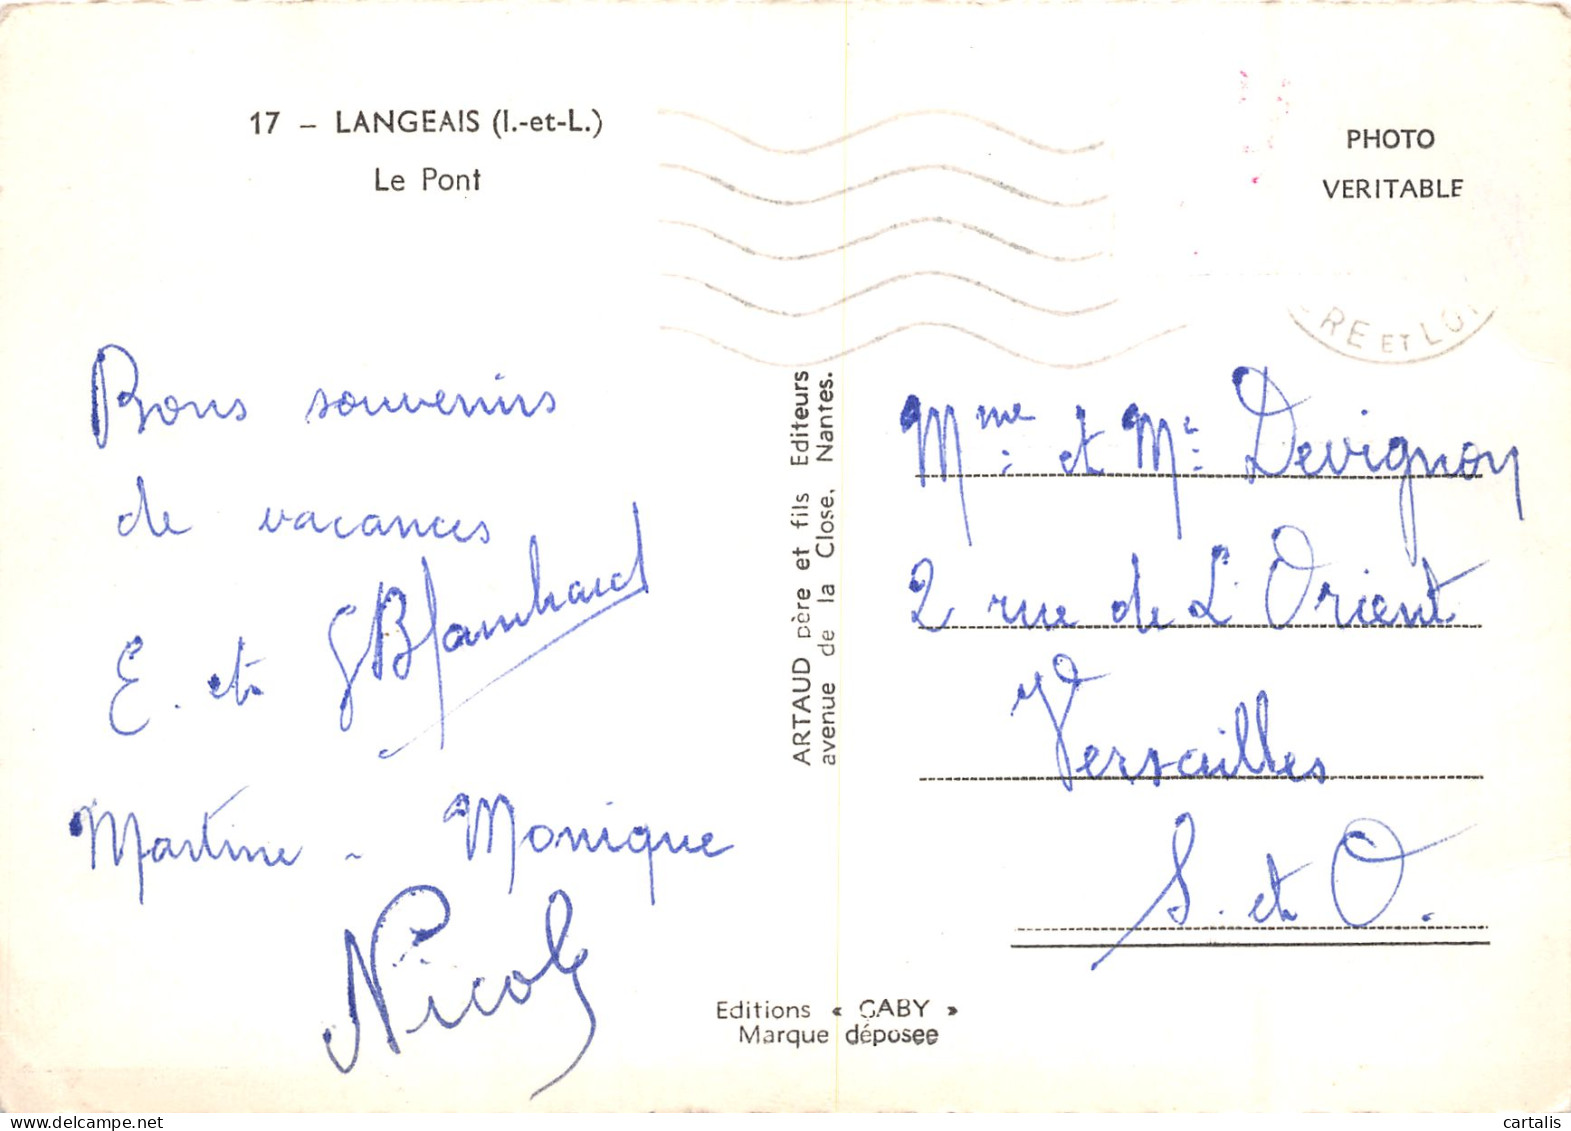 17 – LANGEAIS (I.-et-L.)
Le Pont
PHOTO
VERITABLE
RE ET LOI
Bons souvenirs
de vacances
E. et G Blanchard
Martine - Monique
Nicole
ARTAUD père et fils Editeurs
avenue de la Close, Nantes.
Mme et Mr Devignon
2 rue de L'Orient
Versailles
S. et O.
Editions « GABY »
Marque déposee
cartalis